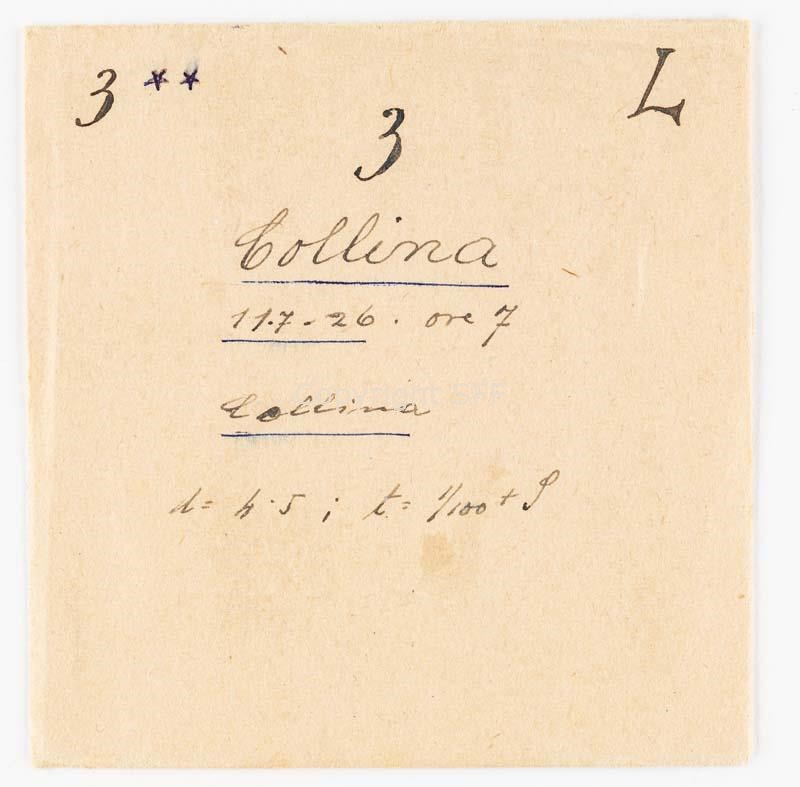 3 ** L
3
Collina
11.7-26. ore 7
Collina
d= 4.5 ; t= 1/100 +